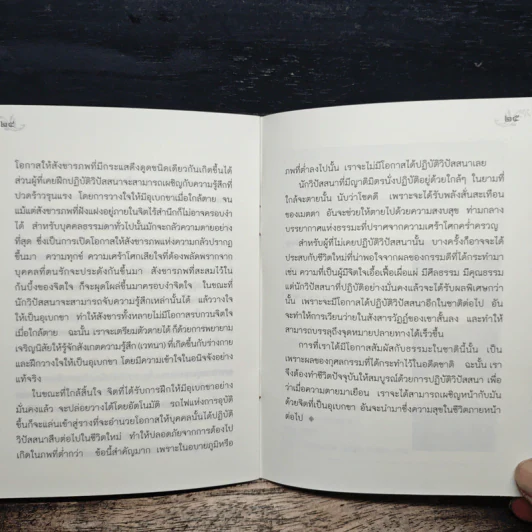 ๒๔
โอกาสให้สังขารภพที่มีกระแสดึงดูดชนิดเดียวกันเกิดขึ้นได้
ส่วนผู้ที่เคยฝึกปฏิบัติวิปัสสนาจะสามารถเผชิญกับความรู้สึกที่
ปวดร้าวรุนแรง โดยการวางใจให้มีอุเบกขาเมื่อใกล้ตาย จน
แม้แต่สังขารภพที่ฝังแฝงอยู่ภายในจิตไร้สำนึกก็ไม่อาจครอบงำ
ได้ สำหรับบุคคลธรรมดาทั่วไปนั้นมักจะกลัวความตายอย่าง
ที่สุด ซึ่งเป็นการเปิดโอกาสให้สังขารภพแห่งความกลัวปรากฏ
ขึ้นมา ความทุกข์ ความเศร้าโศกเสียใจที่ต้องพลัดพรากจาก
บุคคลที่ตนรักจะประดังกันขึ้นมา สังขารภพที่สะสมไว้ใน
ก้นบึ้งของจิตใจ ก็จะผุดโผล่ขึ้นมาครอบงำจิตใจ ในขณะที่
นักวิปัสสนาจะสามารถจับความรู้สึกเหล่านั้นได้ แล้ววางใจ
ให้เป็นอุเบกขา ทำให้สังขารทั้งหลายไม่มีโอกาสรบกวนจิตใจ
เมื่อใกล้ตาย ฉะนั้น เราจะเตรียมตัวตายได้ ก็ด้วยการพยายาม
เจริญนิสัยให้รู้จักสังเกตความรู้สึก (เวทนา) ที่เกิดขึ้นกับร่างกาย
และฝึกวางใจให้เป็นอุเบกขา โดยมีความเข้าใจในอนิจจังอย่าง
แท้จริง
ในขณะที่ใกล้สิ้นใจ จิตที่ได้รับการฝึกให้มีอุเบกขาอย่าง
มั่นคงแล้ว จะปล่อยวางได้โดยอัตโนมัติ รถไฟแห่งการอุบัติ
ขึ้นก็จะแล่นเข้าสู่รางที่จะอำนวยโอกาสให้บุคคลนั้นได้ปฏิบัติ
วิปัสสนาสืบต่อไปในชีวิตใหม่ ทำให้ปลอดภัยจากการต้องไป
เกิดในภพที่ต่ำกว่า ข้อนี้สำคัญมาก เพราะในอบายภูมิหรือ
๒๕
ภพที่ต่ำลงไปนั้น เราจะไม่มีโอกาสได้ปฏิบัติวิปัสสนาเลย
นักวิปัสสนาที่มีญาติมิตรนั่งปฏิบัติอยู่ด้วยใกล้ๆ ในยามที่
ใกล้จะตายนั้น นับว่าโชคดี เพราะจะได้รับพลังสั่นสะเทือน
ของเมตตา อันจะช่วยให้ตายไปด้วยความสงบสุข ท่ามกลาง
บรรยากาศแห่งธรรมะที่ปราศจากความเศร้าโศกคร่ำครวญ
สำหรับผู้ที่ไม่เคยปฏิบัติวิปัสสนานั้น บางครั้งก็อาจจะได้
ประสบกับชีวิตใหม่ที่น่าพอใจจากผลของกรรมดีที่ได้กระทำมา
เช่น ความที่เป็นผู้มีจิตใจเอื้อเฟื้อเผื่อแผ่ มีศีลธรรม มีคุณธรรม
แต่นักวิปัสสนาที่ปฏิบัติอย่างมั่นคงแล้วจะได้รับผลพิเศษกว่า
นั้น เพราะจะมีโอกาสได้ปฏิบัติวิปัสสนาอีกในชาติต่อไป อัน
จะทำให้การเวียนว่ายในสังสารวัฏฏ์ของเขาสั้นลง และทำให้
สามารถบรรลุถึงจุดหมายปลายทางได้เร็วขึ้น
การที่เราได้มีโอกาสสัมผัสกับธรรมะในชาตินี้นั้น เป็น
เพราะผลของกุศลกรรมที่ได้กระทำไว้ในอดีตชาติ ฉะนั้น เรา
จึงต้องทำชีวิตปัจจุบันให้สมบูรณ์ด้วยการปฏิบัติวิปัสสนา เพื่อ
ว่าเมื่อความตายมาเยือน เราจะได้สามารถเผชิญหน้ากับมัน
ด้วยจิตที่เป็นอุเบกขา อันจะนำมาซึ่งความสุขในชีวิตภายหน้า
ต่อไป